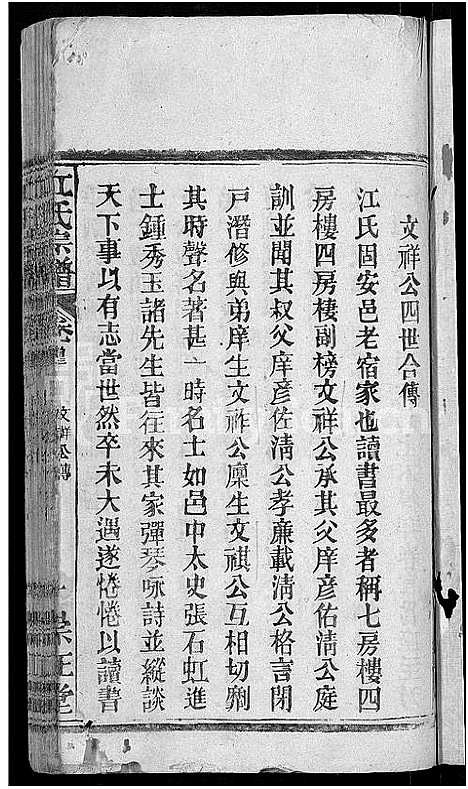 文祥公四世合傳
江氏固安邑老宿家也讀書最多者稱七房樓四
房樓四房棲副榜文祥公承其父庠彥佑淸公庭
訓並聞其叔父庠彥佐淸公孝廉載淸公格言閉
戸潛修與弟庠生文祚公廩生文祺公互相切劘
其時聲名著甚一時名士如邑中太史張石虹進
士鍾秀玉諸先生皆往來其家彈琴咏詩並縱談
天下事以有志當世然卒未大遇遂惓惓以讀書
江氏宗譜 文祥公傳 一 崇正堂